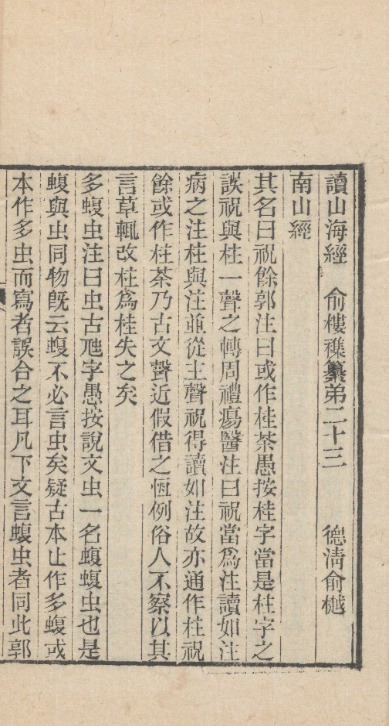 讀山海經　俞樓襍纂弟二十三　德清俞樾
南山經
其名曰祝餘郭注曰或作桂荼愚按桂字當是柱字之
誤祝與柱一聲之轉周禮瘍醫注曰祝當爲注讀如注
病之注柱與注並從主聲祝得讀如注故亦通作柱祝
餘或作柱荼乃古文聲近假借之恆例俗人不察以其
言草輒改柱爲桂失之矣
多蝮虫注曰虫古虺字愚按說文虫一名蝮蝮虫也是
蝮與虫同物旣云蝮不必言虫矣疑古本止作多蝮或
本作多虫而寫者誤合之耳凡下文言蝮虫者同此郭